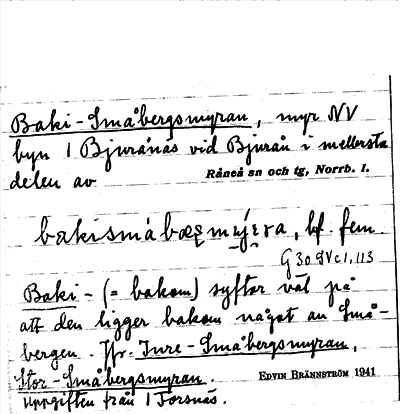 Baki-Småbergsmyran, myr NV
byn 1 Bjurånäs vid Bjurån i mellersta
delen av Råneå sn och tg, Norrb. l.
bakismábæɽmýra, bf. fem.
G 30 SV c 1, 113
Baki- (= bakom) syftar väl på
att den ligger bakom något av Små-
bergen. Jfr. Inre-Småbergsmyran,
Stor-Småbergsmyran. EDVIN BRÄNNSTRÖM 1941
Uppgiften från 1 Forsnäs.